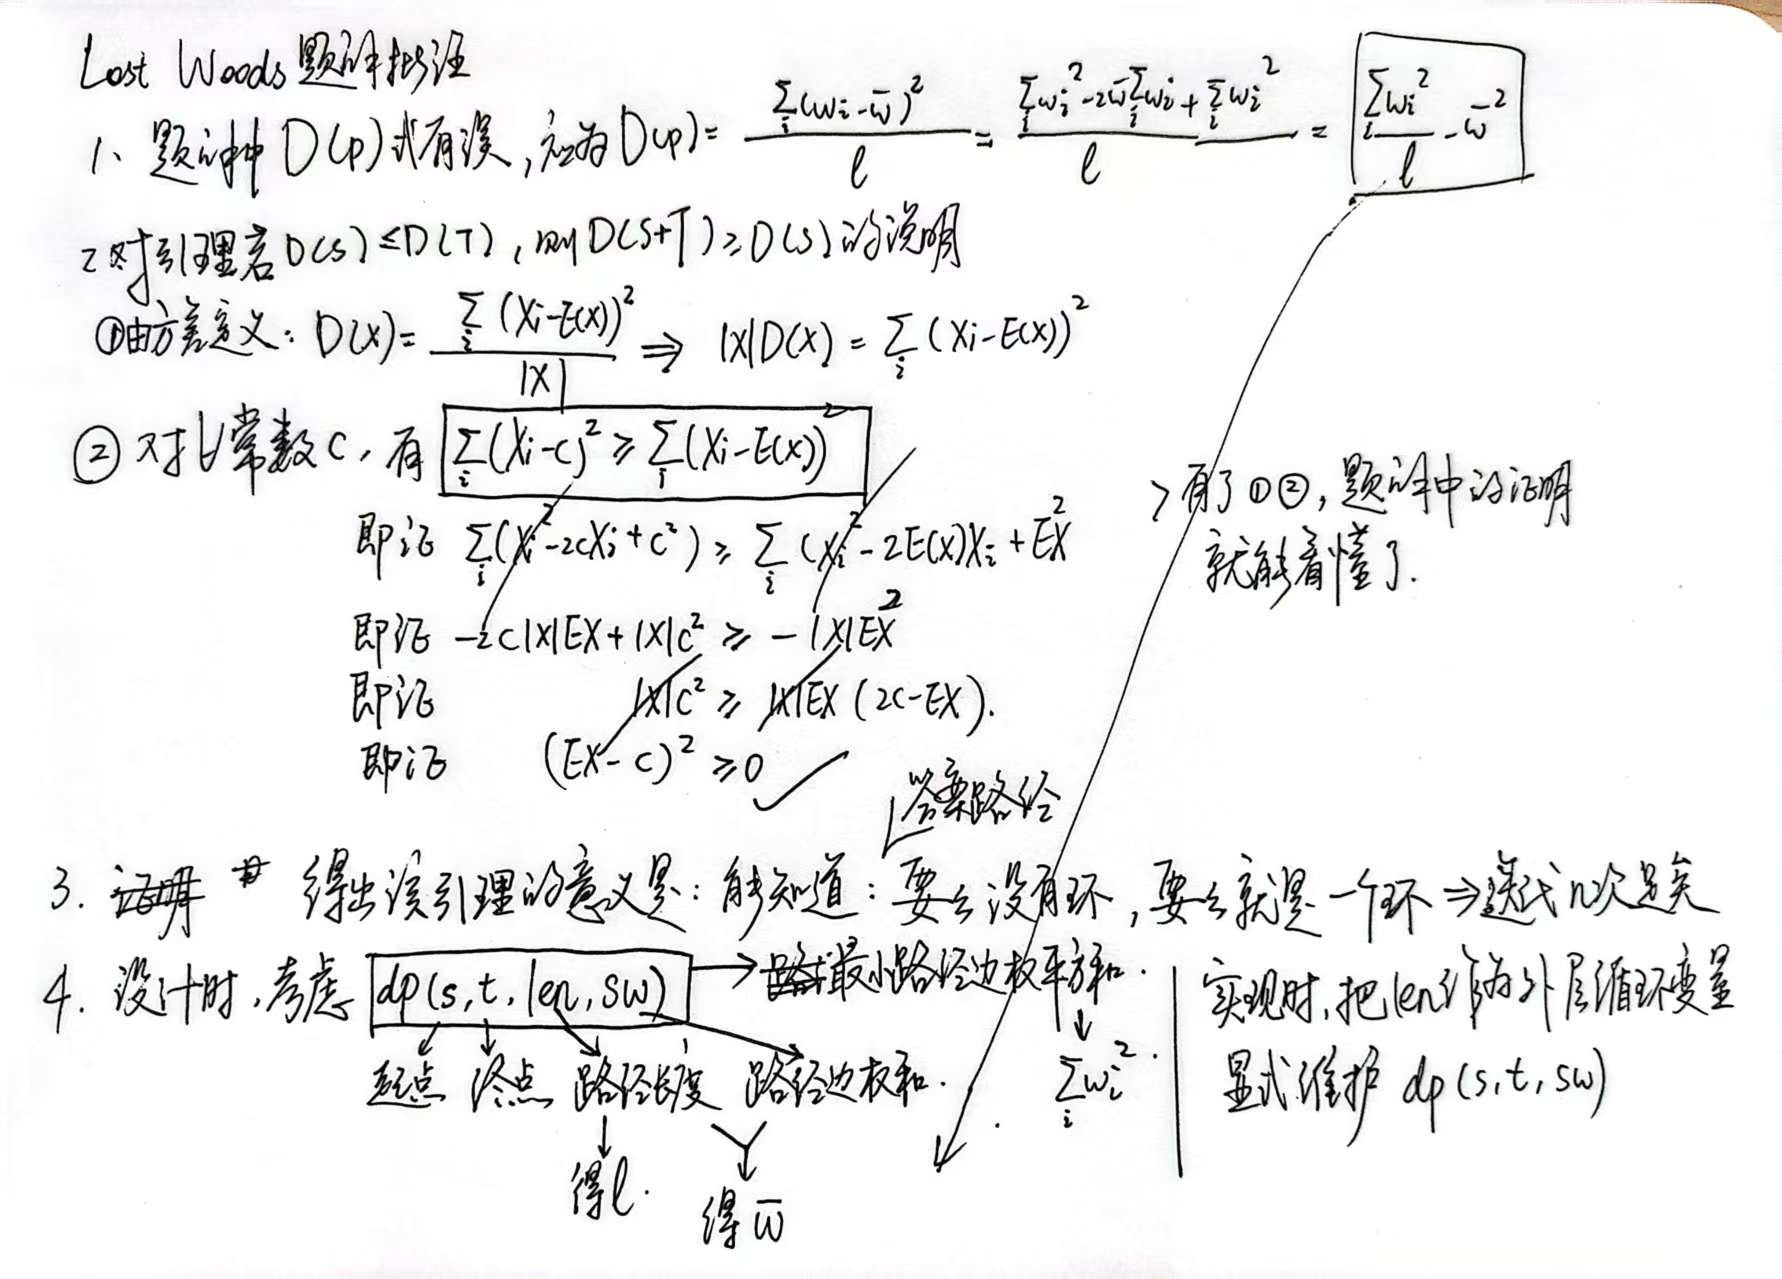 Lost Woods 题解批注
1、题解中 D(p)式有误,应为 D(p)= \frac{\sum_i (w_i-\bar{w})^2}{l} = \frac{\sum_i w_i^2-2\bar{w}\sum_i w_i+\sum_i w_i^2}{l} = \frac{\sum_i w_i^2}{l}-\bar{w}^2
2 对引理若 D(S)≤D(T),则 D(S+T)≥D(S) 的说明
①由方差定义: D(X)= \frac{\sum_i (X_i-E(X))^2}{|X|} ⇒ |X|D(X) = \sum_i (X_i-E(X))^2
② 对∀常数C,有 \sum_i (X_i-C)^2 ≥ \sum_i (X_i-E(X))^2
即证 \sum_i (X_i^2-2CX_i+C^2) ≥ \sum_i (X_i^2-2E(X)X_i+EX^2
即证 -2C|X|EX+|X|C^2 ≥ -|X|EX^2
即证 |X|C^2 ≥ |X|EX(2C-EX).
即证 (EX-C)^2 ≥0 ✓
>有了①②,题解中的证明
就能看懂了.
答案路径
3. 证明 得出该引理的意义是:能知道:要么没有环,要么就是一个环⇒迭代n次足矣
4. 设计时,考虑 dp(s,t,len,sw) → 最小路径边权平方和.
起点 终点 路径长度 路径边权和.
\sum_i w_i^2.
得l.
得 \bar{w}
实现时,把len作为外层循环变量
显式维护 dp(s,t,sw)